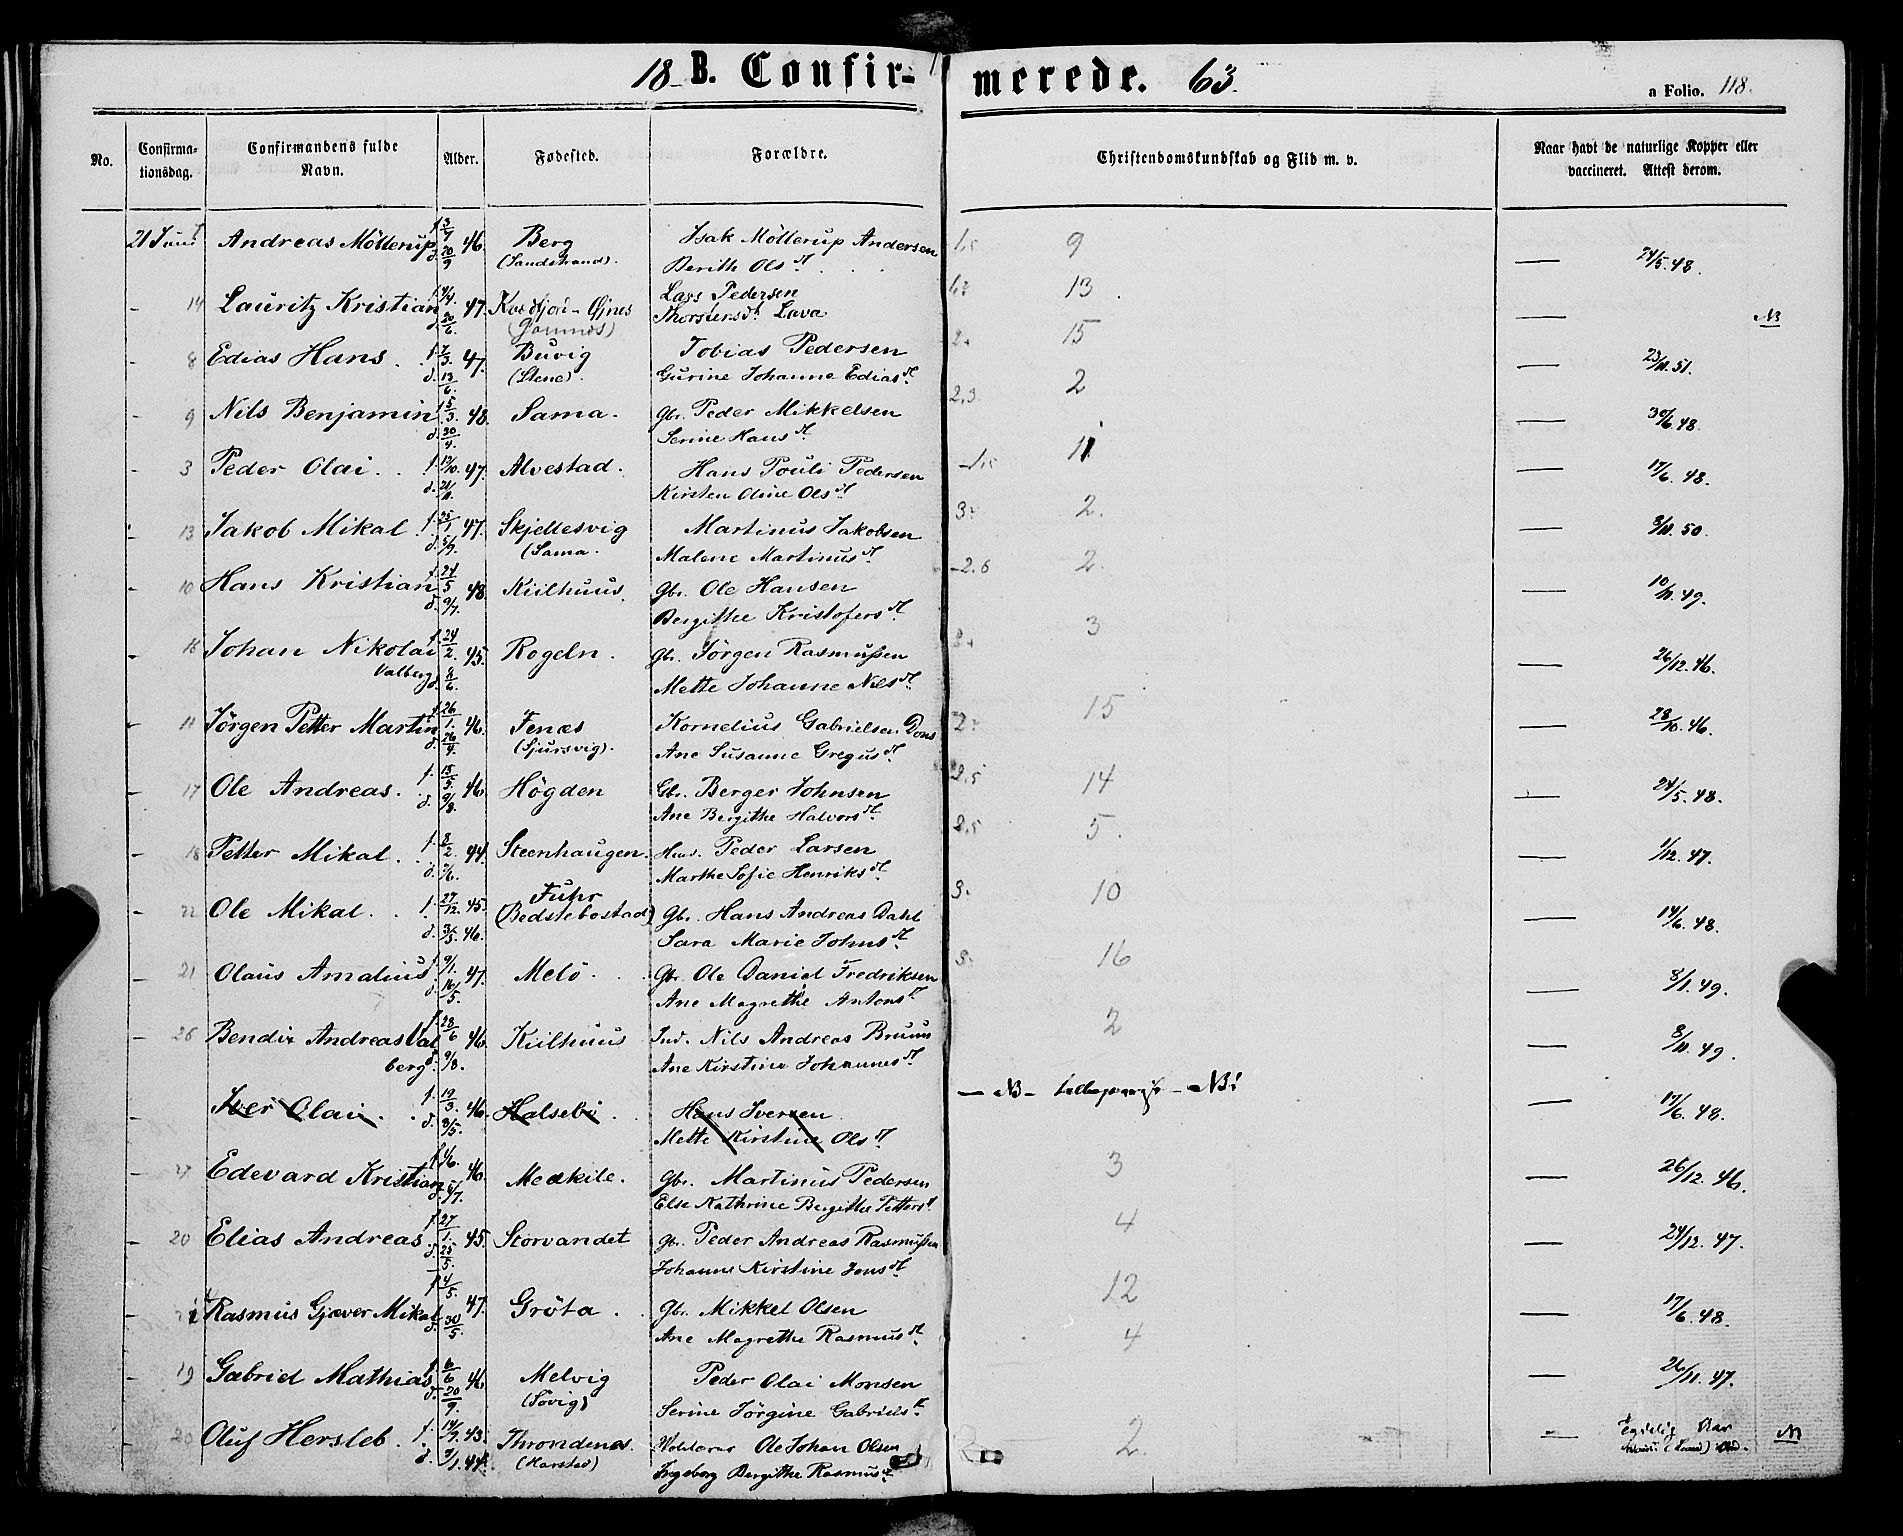 18 B. Confir- merede. 63.
a Folio. 118.
No. Confirma-tionsdag. Confirmandens fulde Navn. Alder. Fødested. Forældre. Christendomskundskab og Flid m. v. Naar havt de naturlige Kopper eller vaccineret. Attest derom.
21 Juni Andreas Möllerup f. 3/7 46. Berg Isak Möllerup Andersen 1,5 9 — 24/5.48.
d. 20/9 (Sandstrand). Berith Olsdt.
- 14 Lauritz Kristian 47. Kasfjord - Øjnes Lars Pedersen 13 — NB
d. 30/6. Thorstensdt. Lava
- 8 Edias Hans. f. 7/3. 47. Buvig Tobias Pedersen 2. 15 — 23/11.51.
d. 13/6. (Stene). Gurine Johanne Ediasdt.
- 9 Nils Benjamin f. 5/3. 48. Sama. gbr. Peder Mikkelsen 2.3. 2 — 30/6.48.
d. 30/4. Serine Hansdt.
- 3 Peder Olai. f. 12/10. 47. Alvestad. Hans Pouli Pedersen 1,5 11 — 17/6.48.
d. 21/11. Kirsten Oline Olsdt.
- 13 Jakob Mikal f. 25/1 47. Skjellesvig Martinus Jakobsen 3. 2. — 8/11.50.
d. 5/7. (Sama. Malene Martinusdt.
- 10 Hans Kristian f. 24/5 48. Kiilhuus. gbr. Ole Hansen 2.6 2. — 10/11.49.
d. 9/7. Bergithe Kristofersdt.
- 16 Johan Nikolai f. 24/2. 45. Rogeln. gbr. Jörgen Rasmussen 3 — 26/12.46.
Valberg d. 8/6. Mette Johanne Nilsdt.
- 11 Jörgen Petter Martin f. 26/1. 46. Fenæs Kornelius Gabrielsen Dons 2. 15 — 28/10.46.
d. 26/4. (Sjursvig). Ane Susanne Gregusdt.
- 17 Ole Andreas. f. 15/5. 46. Högden Gbr. Berger Johnsen 2.5 14 — 24/5.48.
d. 9/8. Ane Bergithe Halvorsdt.
- 18 Petter Mikal. f. 8/2. 44. Steenhaugen. Huus. Peder Larsen 2.5 5. — 1/12.47.
d. 2/6. Marthe Sofie Henriksdt.
- 22 Ole Mikal. f. 27/12. 45. Fuhr (Bedstebostad) gbr. Hans Andreas Dahl 3. 10 — 14/6.48.
d. 3/5. 46. Sara Marie Johnsdt.
- 21 Olaus Amalius f. 9/1. 47. Melö. gbr. Ole Daniel Fredriksen 3. 16 — 8/1.49.
d. 16/5. Ane Magrethe Antonsdt.
- 26 Bendix Andreas Val f. 28/6 46. Kiilhuus Ind. Nils Andreas Bruun 2 — 8/11.49.
berg d. 9/8. Ane Kirstine Johannesdt.
Iver Olai. f. 19/3. 46. Halsebö. Hans Iversen — NB — NB! — 17/6.48.
d. 3/5. Mette Kirstine Olsdt.
- 27 Edevard Kristian 46. Medkile. gbr. Martinus Pedersen 3 — 26/12.46.
d. 5/7. Else Kathrine Bergithe Pettersdt.
- 20 Elias Andreas f. 27/1. 45. Storvandet gbr. Peder Andreas Rasmussen 4 — 24/12.47.
d. 25/5. Johanne Kirstine Jonsdt.
- Rasmus Gjæver Mikal f. 4/5. 47. Gröta. gbr. Mikkel Olsen 12 — 17/6.48.
d. 30/5. Ane Magrethe Rasmusdt.
- 19 Gabriel Mathias f. 6/6 46. Melvig Peder Olai Monsen 4 — 26/11.47.
d. 20/9. (Sövig) Serine Jörgine Gabrielsdt.
- 20 Oluf Hersleb. f. 14/9. 43. Throndenæs. Ole Johan Olsen 2. —
d. 9/1. 44. (Harstad) Ingeborg Bergithe Rasmusdt.